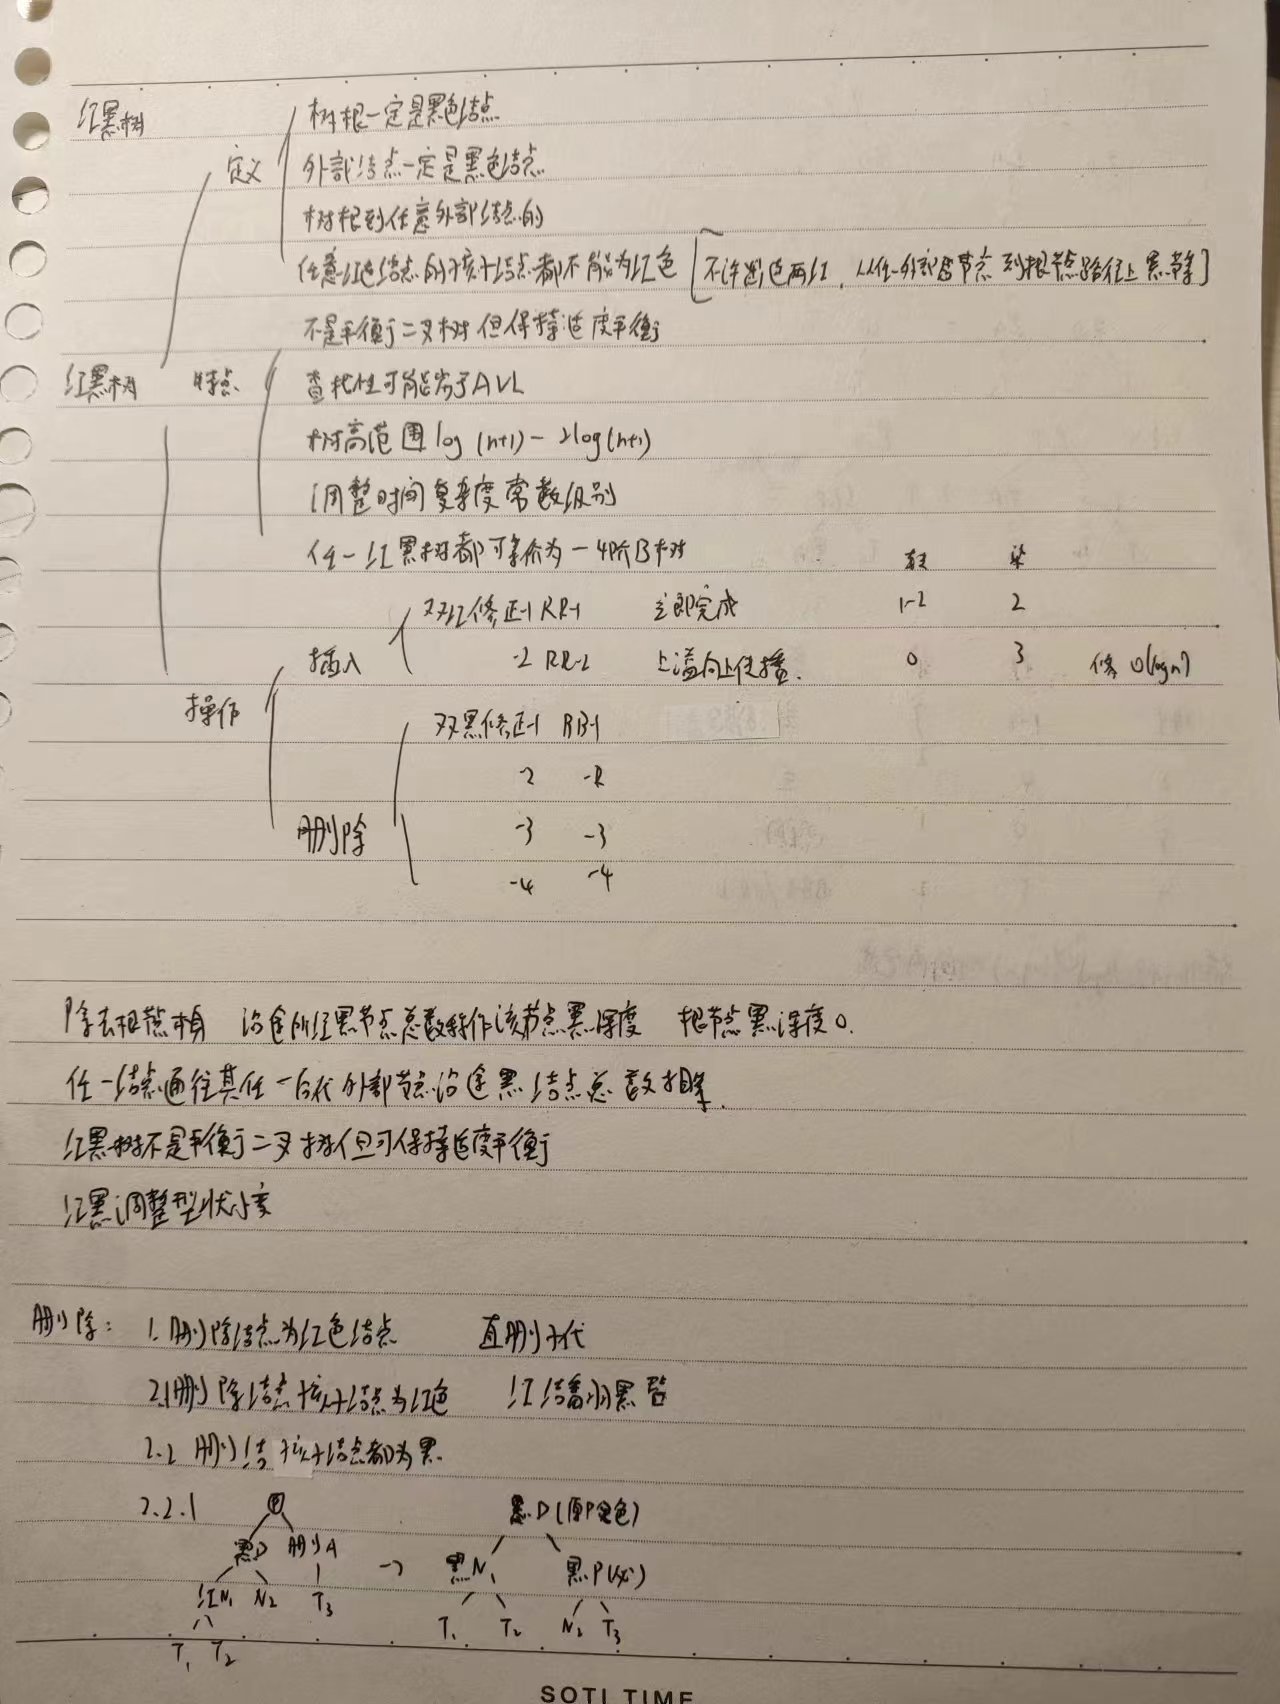 红黑树
树根一定是黑色结点
定义 外部结点一定是黑色结点
树根到任意外部结点的
任意红色结点的孩子结点都不能为红色 [不许连两红, 从任一外部节点到根节点路径上黑等]
不是平衡二叉树但保持适度平衡
红黑树 特点 查找性可能劣于AVL
树高范围 log (n+1) - 2log(n+1)
调整时间复杂度常数级别
任一红黑树都可等价为一4阶B树 染
双红修正-1 RR-1 立即完成 1-2 2
插入 -2 RR-2 上溢向上传播. 0 3 修 O(logn)
操作 双黑修正-1 BB-1
-2 -2
删除 -3 -3
-4 -4
除去根节点本身 沿途所经黑节点总数称作该节点黑深度 根节点黑深度0.
任一结点通往其任一后代外部节点沿途黑结点总数相等.
红黑树不是平衡二叉树但可保持适度平衡
红黑调整型状小变
删除: 1. 删除结点为红色结点 直删子代
2.1 删除结点孩子结点为红色 红结点羽黑
2.2 删结 孩子结点都为黑
2.2.1 P 黑D(原P色)
黑D 删A → 黑N₁ 黑P(必)
红N₁ N₂ T₃ T₁ T₂ N₂ T₃
T₁ T₂
SOTI TIME